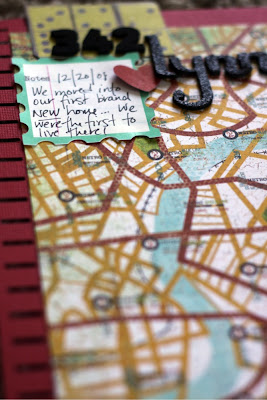 342
Lynn
Notes 12/20/08
We moved into
our first brand
New home... We
were the first to
live there!